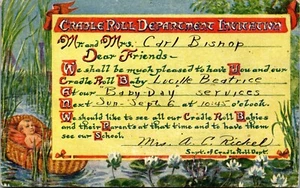 CRADLE ROLL DEPARTMENT INVITATION
Mr. and Mrs. Carl Bishop
Dear Friends—
We shall be much pleased to have You and our
Cradle Roll Baby Lucille Beatrice
At our Baby-Day services
Next Sun-Sept. 6 at 10:45 o'clock.
We should like to see all our Cradle Roll Babies
and their Parents at that time and to have them
see our School.
Mrs. A. C.
Supt. of Cradle Roll Dept.